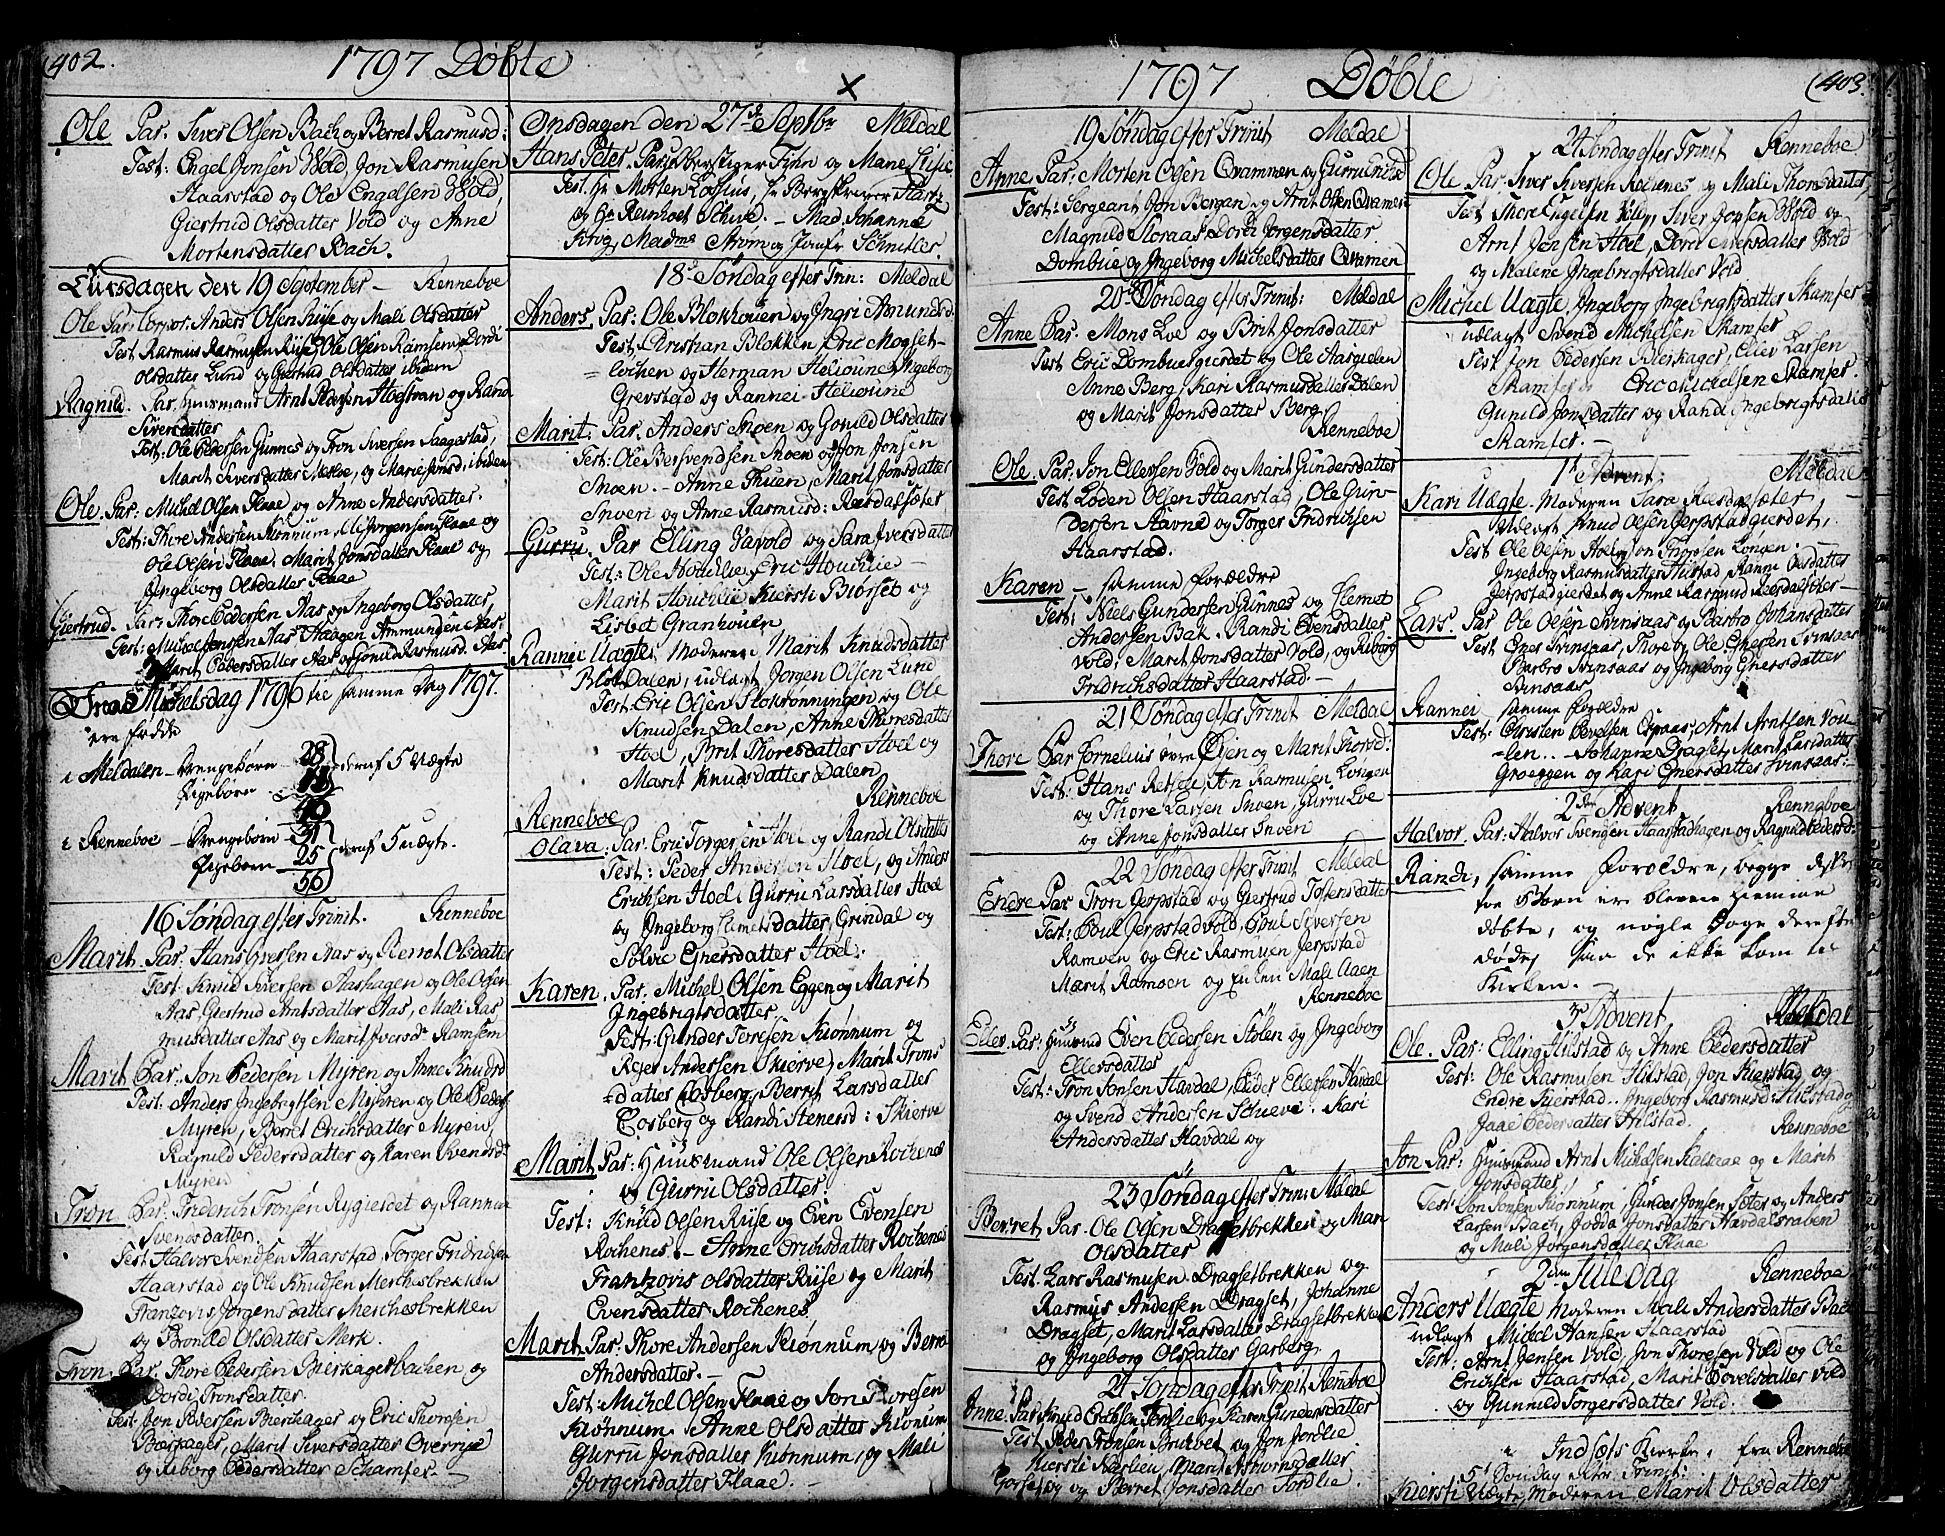 402.
1797 Døbte
Ole Par. Siver Olsen Bach og Berret Rasmusd:
Test: Engel Jonsen Wold, Jon Rasmusen
Haarstad og Ole Engelsen Wold,
Giertrud Olsdatter Vold og Anne
Mortensdatter Bach.
Tirsdagen den 19 September – Renneboe
Ole Par: Corpor: Anders Olsen Riise og Mali Olsdatter
Test Rasmus Rasmusen Riise, Ole Olsen Ramsem, Dordi
Olsdatter Lund og Giertrud Olsdatter ibidem
Ragnild. Par. Huusmand Arnt Hoelsvan og Rand
Siversdatter
Test: Ole Pedersen Gunnes og Tron Siversen Saagestad,
Marit Siversdatter og Marie Jonsd: ibidem
Ole. Par: Michel Olsen Flaae og Anne Andersdatter.
Test: Thore Andersen Kiønnum, Jørgensen Flaae og
Ole Olsen Flaae. Marit Jonsdatter Flaae og
Ingeborg Olsdatter Flaae
Giertrud. Par: Thore Pedersen Aas og Ingeborg Olsdatter
Test: Michel Jensen Aas Haagen Ammundsen Aas.
Marit Pedersdatter Aas og Gunild Rasmusd. Aas.
Fra Michelsdag 1796 til samme Dag 1797.
ere fødde
i Meldalen – Drengebørn – 28
Pigebørn . 18 } deraf 5 Uægte
46
i Renneboe – Drengebørn – 31
Pigebørn – 25 } deraf 5 uægte.
56
16 Søndag efter Trinit. Renneboe
Marit. Par: Hans Iversen Aas og Berret Olsdatter
Test: Knud Siversen Aashagen og Ole Olsen
Aas, Giertrud Arntsdatter Aas, Mali Ras
musdatter Aas og Marit Iversdr Ramsem
Marit Par.. Jon Pedersen Myren og Anne Knudsd
Test: Anders Ingebrigtsen Myhren og Ole Peders
Myren, Berret Erichsdatter Myren,
Ragnild Pedersdatter og Karen Svendsdr
Myren
Tron Par. Friderich Tronsen Rygierdet og Rannie
Svensdatter.
Test Halvor Svendsen Haarstad, Torger Fridrichsen
Haarstad og Ole Knudsen Merchesbrekken
Franzovis Jørgensdatter Merchesbrekken
og Bronild Olsdatter Merk.
Tron. Par. Thore Pedersen Bierkagerbachen og
Dordi Tronsdatter.
Test: Jon Pedersen Bierkager og Eric Thoresen
Bierkager, Marit Siversdatter
og Riborg Pedersdatter Schamfer. –
Onsdagen den 27de Septbr Meldal
Hans Peter. Par: Oberstiger Finn og Mane
Test. Hr Morten Lossius, Hr Bergskriver
og Hr Reinholt Schive. – Mad Johanne
Krog, Madme Strøm og Jomfr Schnitler
18de Søndag efter Trin: Meldal
Anders. Par: Ole Blokhouen og Ingri Amundsd.
Test: Christian Blokken Eric Mogset-
lochen og Herman Heliounet Ingeborg
Grevstad og Rannei Heliounet
Marit: Par. Anders Snoen og Gonild Olsdatter
Test: Ole Bersvendsen Snoen og Jon Jonsen
Snoen. – Anne Thuen, Marit Jonsdatter
Snveri og Anne Rasmusd: Ræsdalsæter
Gurru. Par Elling Vavold og Sara Iversdatter
Test: Ole Houchlie, Eric Houchlie –
Marit Houchlie Kiersti Biørset og
Lisbet Granhouen
Rannei Uægte, Moderen Marit Knudsdatter
Dalen, udlagt Jørgen Olsen Lund
Test: Eric Olsen Stokrønningen og Ole
Knudsen Dalen, Anne Thoresdatter
Hoel, Brit Thoresdatter Hoel og
Marit Knudsdatter Dalen
Renneboe Renneboe
Olava: Par: Eric Torgersen Hoel og Randi Olsdatter
Test: Peder Andersen Hoel, og Anders
Erichsen Hoel Gurru Larsdatter Hoel
og Ingeborg Clemetsdatter, Grindal og
Solvie Enersdatter Hoel.
Karen. Par. Michel Olsen Eggen og Marit
Ingebrigtsdatter
Test: Gunder Toresen Kiønnum og
Reier Andersen Skierve, Marit Trons
datter Cosberg, Berret Larsdatter
Cosberg og Randi Stenersd: Skierve
Marit Par: Huusmand Ole Olsen Rochenes
og Gurru Olsdatter.
Test: Knud Olsen Riise og Even Evensen
Rochenes. – Anne Erichsdatter Rochenes
Frantzovis Olsdatter Riise og Marit
Evensdatter Rochenes.
Marit Par: Thore Andersen Kiønnum, og Berret
Andersdatter. –
Test: Michel Olsen Flaae og Jon Thoresen
Kiønnum, Anne Olsdatter Kiønum
Gurru Jonsdatter Kiønnum, og Mali
Jorgensdatter Flaae. –
403.
1797 Døbte
19 Søndag efter Trinit Meldal
Anne Par: Morten Olsen Qvammen og Guru
Test: Sergeant Jon Bergan og Arnt Olsen Qvamen
Magnild Storaas Dordi Jorgensdatter
Dombue og Ingeborg Michelsdatter Qvamen
20de Søndag efter Trinit: Meldal
Anne Par. Mons Loe og Brit Jonsdatter
Test Eric Dombuesgierdet og Ole
Anne Berg, Kari Rasmusdatter Dalen
og Marit Jonsdatter Berg
Renneboe
Ole Par: Jon Ellefsen Vold og Marit Gundersdatter
Test Loden Olsen Haarstad, Ole Gun-
dersen Stavne og Torger Fridrichsen
Haarstad.
Karen – samme forældre
Test: Niels Gundersen Gunnes og Clemet
Andersen Bak. Randi Evensdatter
Vold, Marit Jonsdatter Vold, og Riborg
Fridrichsdatter Haarstad. –
21 Søndag efter Trinit Meldal
Thore Par Cornelius øvre Øien og Marit Thorsd:
Test: Hans Retsel, Jon Rasmusen Longen
og Thore Larsen Snoen, Gurru Loe
og Anne Jonsdatter Snven
22 Søndag efter Trinit Meldal
Endre Par Tron Jerpstad og Giertrud Tostensdatter
Test: Poul Jerpstadvold, Poul Siversen
Ramoen og Eric Rasmusen Jerpstad
Marit Ramoen og Mali Aaen
Renneboe
Ellev Par: Huusmd Even Pedersen Stølen og Ingeborg
Ellevsdatter
Test: Tron Jonsen Havdal, Peder Ellevsen Havdal
og Svend Andersen Schieve. Kari
Andersdatter Havdal og
23 Søndag efter Trin: Meldal
Berret Par. Ole Olsen Dragsetbrekken og Mari
Olsdatter
Test. Lars Rasmusen Dragsetbrekken og
Rasmus Andersen Dragset, Johanne
Dragset, Marit Larsdatter Dragsetbrekken
og Ingeborg Olsdatter Garberg
24 Søndag efter Trinit Renneboe
Anne Par Knud Erichsen Jordlie og Karen Gundersdatter
Test Peder Tronsen Brukvet og Jon Jordlie
Kiersti Nærlien, Marit Asmonsdatter
og Berret Jonsdatter Jordlie
24 Søndag efter Trinit Renneboe
Ole Par: Siver Siversen Rochenes og Mali Thorsdatter
Test Thore Engelsen Siver Jonsen Wold og
Arnt Jensen Hoel, Dordi Siversdatter Wold
og Malene Ingebrigtsdatter Vold
Michel Uægte, Ingeborg Ingebrigtsdatter Skamfer
udlagt Svend Michelsen Skamfer
Test Jon Pedersen Bierkager, Ellev Larsen
Skamfer Eric Michelsen Skamfer
Gunild Jonsdatter og Randi Ingebrigtsdatter
Skamfer. –
1st Advent, Meldal
Kari Uægte. Moderen Sara Ræsdalsæter,
Udlagt Knud Olsen Jerpstadgierdet,
Test Ole Olsen Hoel, Jon Thorsen Longen.
Ingeborg Rasmusdatter Hilstad, Ranni Olsdatter
Jerpstadgierdet og Anne Rasmusd Ræsdalsæter
Lars Par Ole Olsen Svinsaas og Barbro Johansdatter
Test Enes Svinsaas, Thore og Ole Enersen Svinsaas
Barbro Svinsaas og Ingeborg Enersdatter
Svinsaas
Rannei samme forældre
Test: Christen Arnt Arntsen Vou
len.. – Johanne Dragset, Marit Larsdatter
Groeggen og Kari Enersdatter Svinsaas. –
2den Advent Renneboe
Halvor. Par: Halvor Svensen Haarstadhagen og Ragnild Pedersd:
Randi, samme forældre, begge disse
toe Børn ere blevne hiemme
døbte, og nogle Dage derefter
døde, saa de ikke kom til
Kirken. –
3die Advent Meldal
Ole. Par: Elling Hilstad og Anne Pedersdatter
Test: Ole Rasmusen Hilstad, Jon Kierstad og
Endre Kierstad.. Ingeborg Rasmusd: Hilstad og
Jaae Pedersdatter Hilstad. Renneboe
Jon Par: Huusmand Arnt Michelsen og Marit
Jonsdatter
Test: Jon Jonsen Kiønnum, Gunder Jonsen Seter og Anders
Larsen Bach, Jodda Jonsdatter Havdalsraben
og Mali Jorgensdatter Flaae
2den Juledag Renneboe
Anders Uægte Moderen Mali Andersdatter Bach
udlagt Michel Hansen Haarstad
Test: Arnt Jensen Vold, Jon Thoresen Vold og Ole
Erichsen Haarstad, Marit Bovelsdatter Vold
og Gunnild Torgersdatter Vold.
i Indsets Kierke, fra Renneboe
5t Søndag efter Trinit:
Kiersti Uægte, Moderen Marit Olsdatter